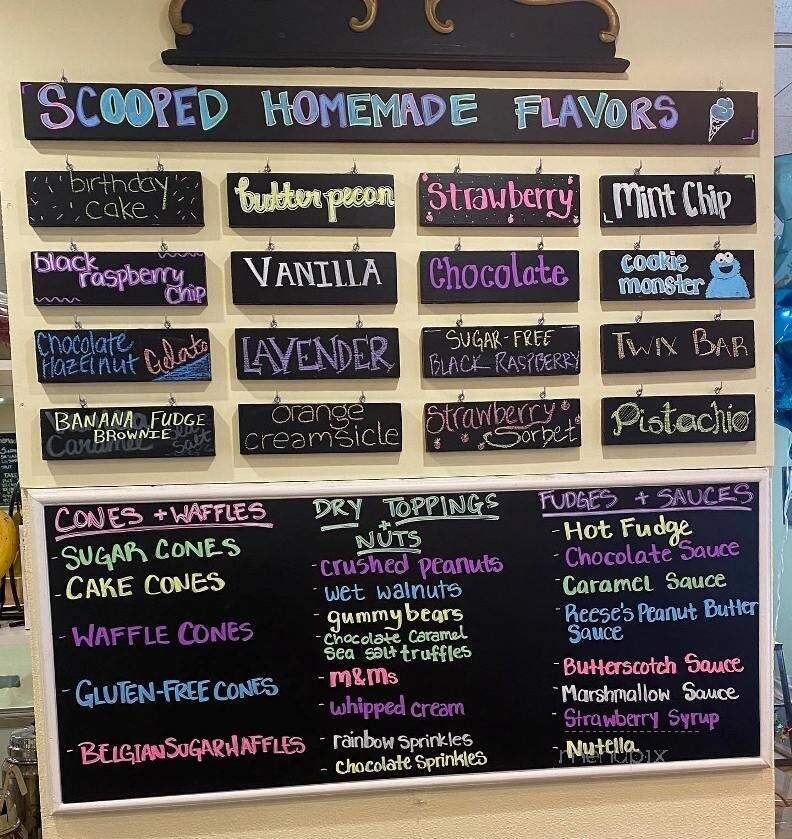 SCOOPED HOMEMADE FLAVORS
birthday
cake
butter pecan
Strawberry
Mint Chip
black
raspberry
chip
VANILLA
Chocolate
cookie
monster
Chocolate
Hazelnut
Gelato
LAVENDER
SUGAR-FREE
BLACK RASPBERRY
TWIX BAR
BANANA FUDGE
BROWNIE
Caramel
orange
creamsicle
Strawberry
Sorbet
Pistachio
CONES + WAFFLES
- SUGAR CONES
- CAKE CONES
- WAFFLE CONES
- GLUTEN-FREE CONES
- BELGIAN SUGAR WAFFLES
DRY TOPPINGS
+
NUTS
- crushed peanuts
- wet walnuts
- gummybears
- Chocolate Caramel
Sea salt truffles
- M&Ms
- whipped cream
- rainbow Sprinkles
- Chocolate Sprinkles
FUDGES + SAUCES
- Hot Fudge
- Chocolate Sauce
- Caramel Sauce
- Reese's Peanut Butter
Sauce
- Butterscotch Sauce
- Marshmallow Sauce
- Strawberry Syrup
- Nutella
menupix